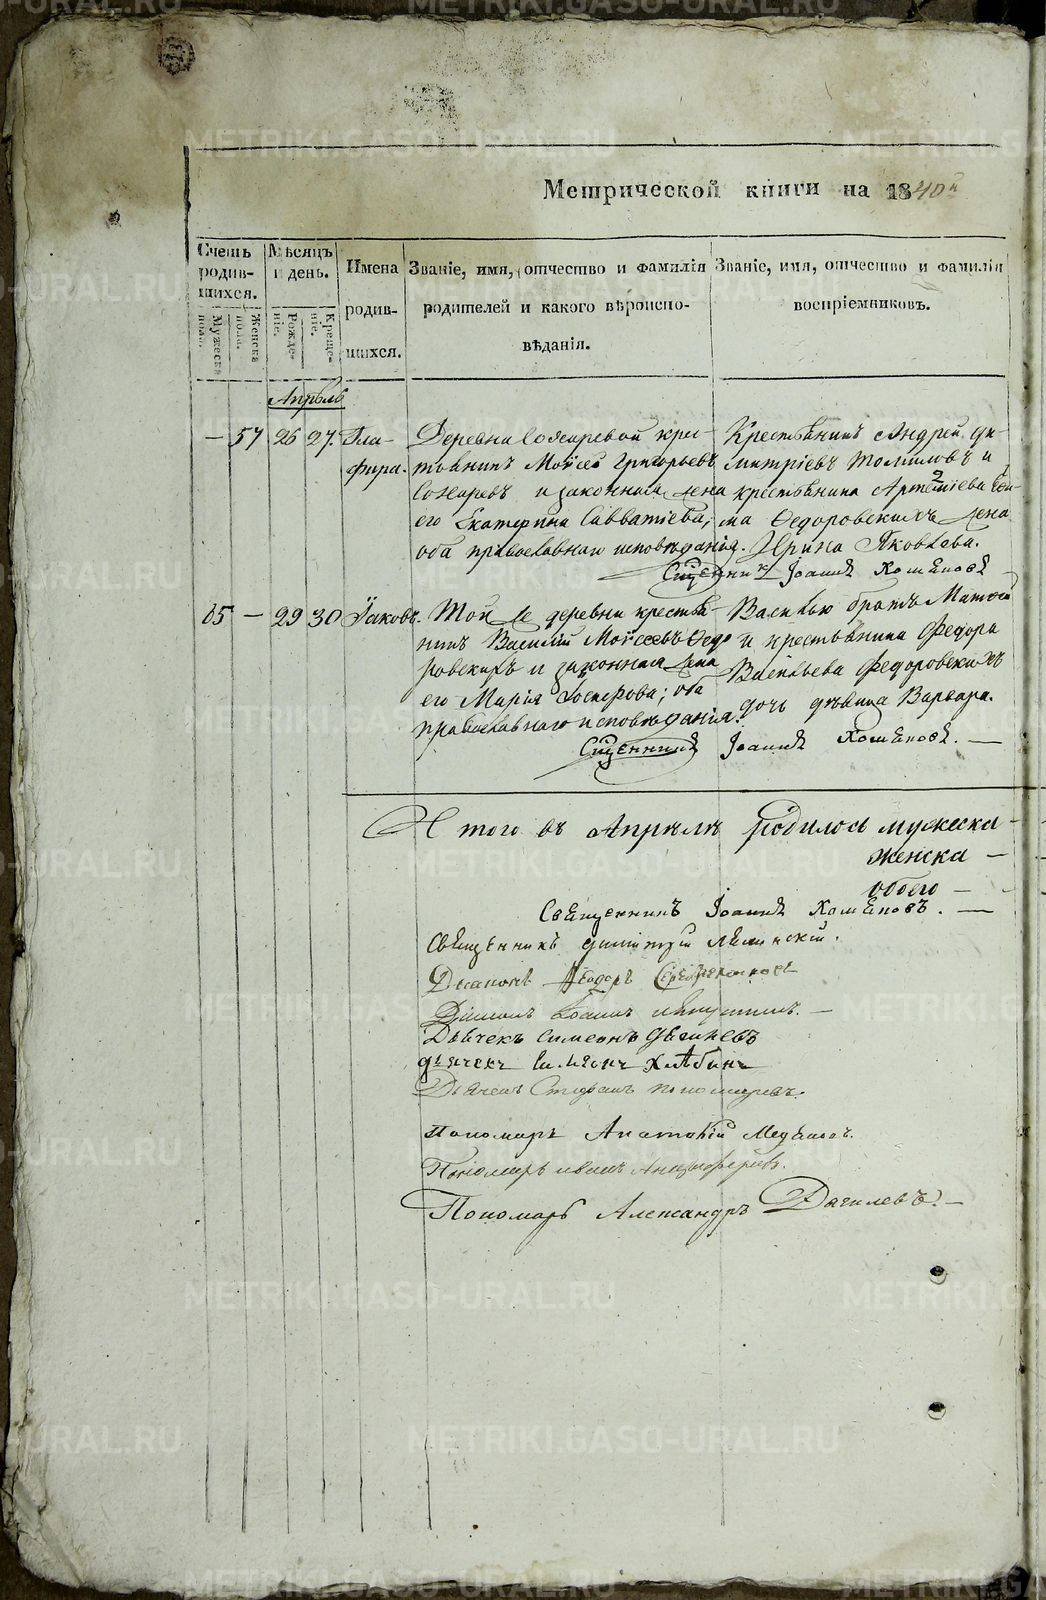 Метрической книги на 1840й
Счетъ родив-шихся.
Мужеска пола.
Женска пола.
Мѣсяцъ и день.
Рожде-ніе.
Креще-ніе.
Имена родив-шихся.
Званіе, имя, отчество и фамилія родителей и какого вѣроиспо-вѣданія.
Званіе, имя, отчество и фамилія воспріемниковъ.
Апрѣль
— 57 26 27. Гла-
фира.
Деревни кре-
стьянинъ Моѵсей Григорьевъ
и законная жена
его Екатерина Савватіева,
оба православнаго исповѣданія.
Крестьянинъ Андрей Ди-
митріевъ Томиловъ и
крестьянина Артемія
Федоровскихъ жена
Ирина Яковлева.
Священникъ Іоаннъ
65 — 29 30 Іаковъ.
Той же деревни крестья-
нинъ Василій Моѵсеевъ Федо
ровскихъ и законная жена
его Марія; оба
православнаго исповѣданія.
Василью братъ
и крестьянина Федора
Васильева Федоровскихъ
дочь дѣвица Варвара.
Священникъ Іоаннъ
Итого въ Апрѣлѣ родилось мужеска —
женска —
обоего —
Священникъ Іоаннъ
Священникъ Димитрій
Діаконъ Ѳеодоръ
Діаконъ Іоаннъ
Дьячекъ Симеонъ
Дьячекъ Хлѣбинъ
Дьячекъ Стефанъ Пономаревъ.
Пономарь Анатолій
Пономарь Иванъ Анциферовъ.
Пономарь Александръ Дягилевъ. —
METRIKI.GASO-URAL.RU